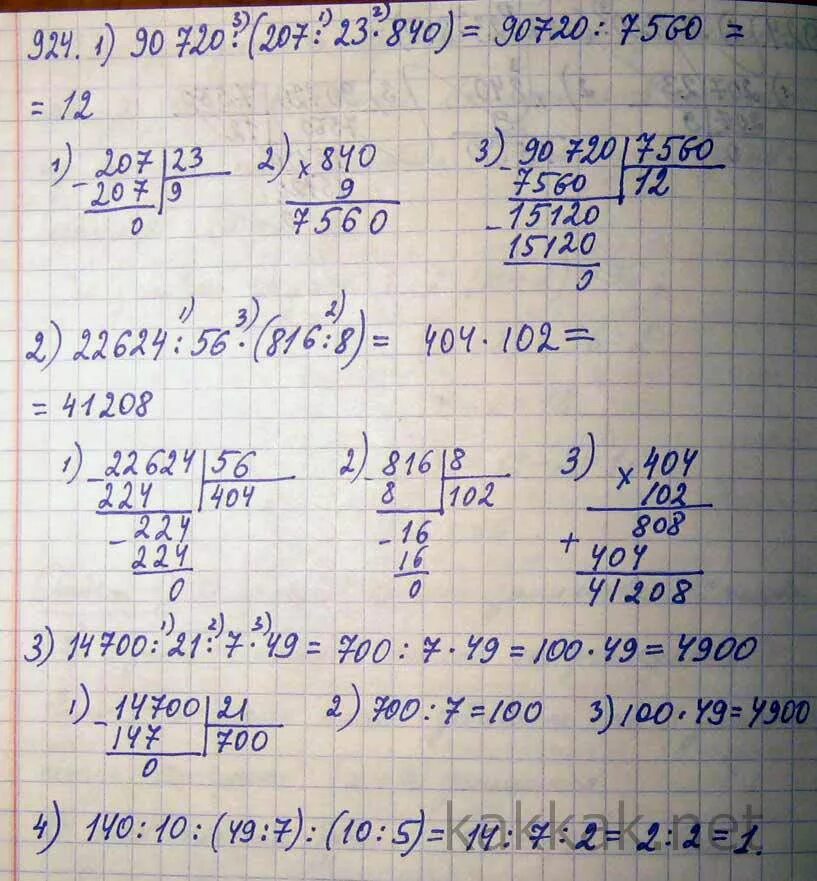 924. 1) 90 720 :³⁾ (207 :¹⁾ 23 ·²⁾ 840) = 90720 : 7560 =
= 12
1) - 207 | 23
207 | 9
0
2) × 840
9
7560
3) - 90 720 | 7560
7560 | 12
- 15120
15120
0
2) 22624 :¹⁾ 56 ·³⁾ (816 :²⁾ 8) = 404 · 102 =
= 41208
1) - 22624 | 56
224 | 404
- 224
224
0
2) - 816 | 8
8 | 102
- 16
16
0
3) × 404
102
808
+ 404
41208
3) 14700 :¹⁾ 21 :²⁾ 7 ·³⁾ 49 = 700 : 7 · 49 = 100 · 49 = 4900
1) - 14700 | 21
147 | 700
0
2) 700 : 7 = 100
3) 100 · 49 = 4900
4) 140 : 10 : (49 : 7) : (10 : 5) = 14 : 7 : 2 = 2 : 2 = 1.
kakkak.net